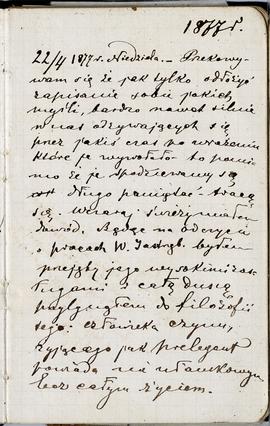 1877 r.
22/4 1877 r. Niedziela. — Przekony-
wam się że jak tylko odłożyć
zapisanie sobie jakich
myśli, bardzo nawet silnie
w nas odzywających się
przez jakiś czas po wrażeniu
które je wywołało to pomi-
mo że je spodziewamy się
długo pamiętać tracą
się. Wczoraj świeży miałem
dowód. Będąc na odczycie
o pracach W. Jastrzęb. byłem
przejęty jego wysokiemi zas-
ługami i całą duszą
przylgnąłem do filozofii
tego: człowieka czynu,
żyjącego jak prelegent
powiada na ułamkowym
lecz całym życiem.